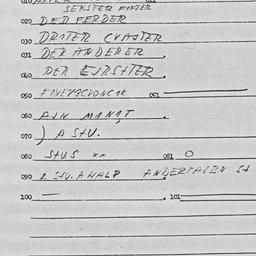 SEKSTER FIFTER
020 DER FERDER
030 DRITER CVAJTER
031 DER ANDERER
040 DER EJRSHTER
050 051
060 AJN MANAT
070 ) A SHU.
080 SHUS xx 081 O
090 A SHU. A HALB ANDERTALIN SH
100 — 101